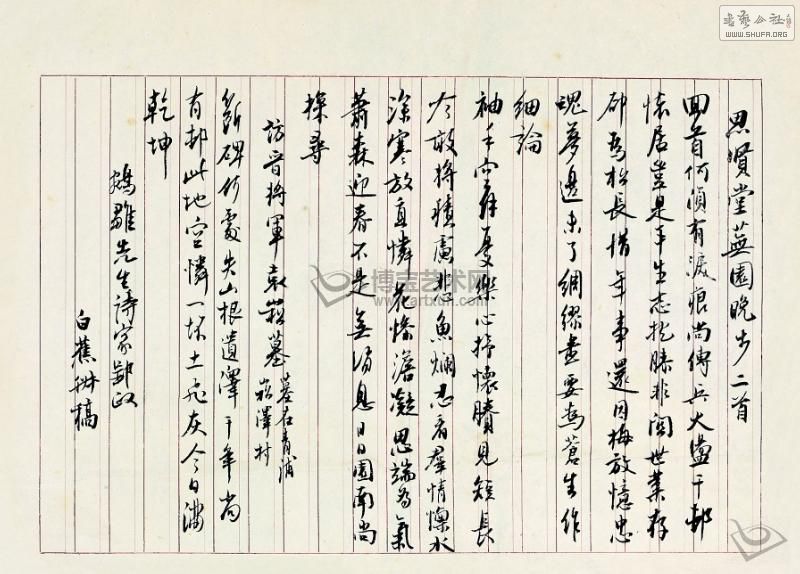 思賢堂蕪園晚步二首
回首何須有淚痕尚傳兵火盡千邨
懷居豈是平生志抱膝非關世業存
卻為松長惜年事還因梅放憶忠
魂夢邊未了綢繆盡要為蒼生作
細論
袖手向庭憂樂心抒懷賸見短長
今敢將積廣悲魚爛忍看群情懍水
深寒放直憐花慘澹凝思端為氣
蕭森迎春不是無消息日日園南尚
探尋
訪晉將軍袁崧墓 墓在青浦
崧澤村
斷碑何處失山根遺澤千年尚
有邨此地空憐一抔土飛灰今日滿
乾坤
鵷雛先生詩家郢政
白蕉繎稿
書藝公社
WWW.SHUFA.ORG
博宝艺术网
www.artxun.com